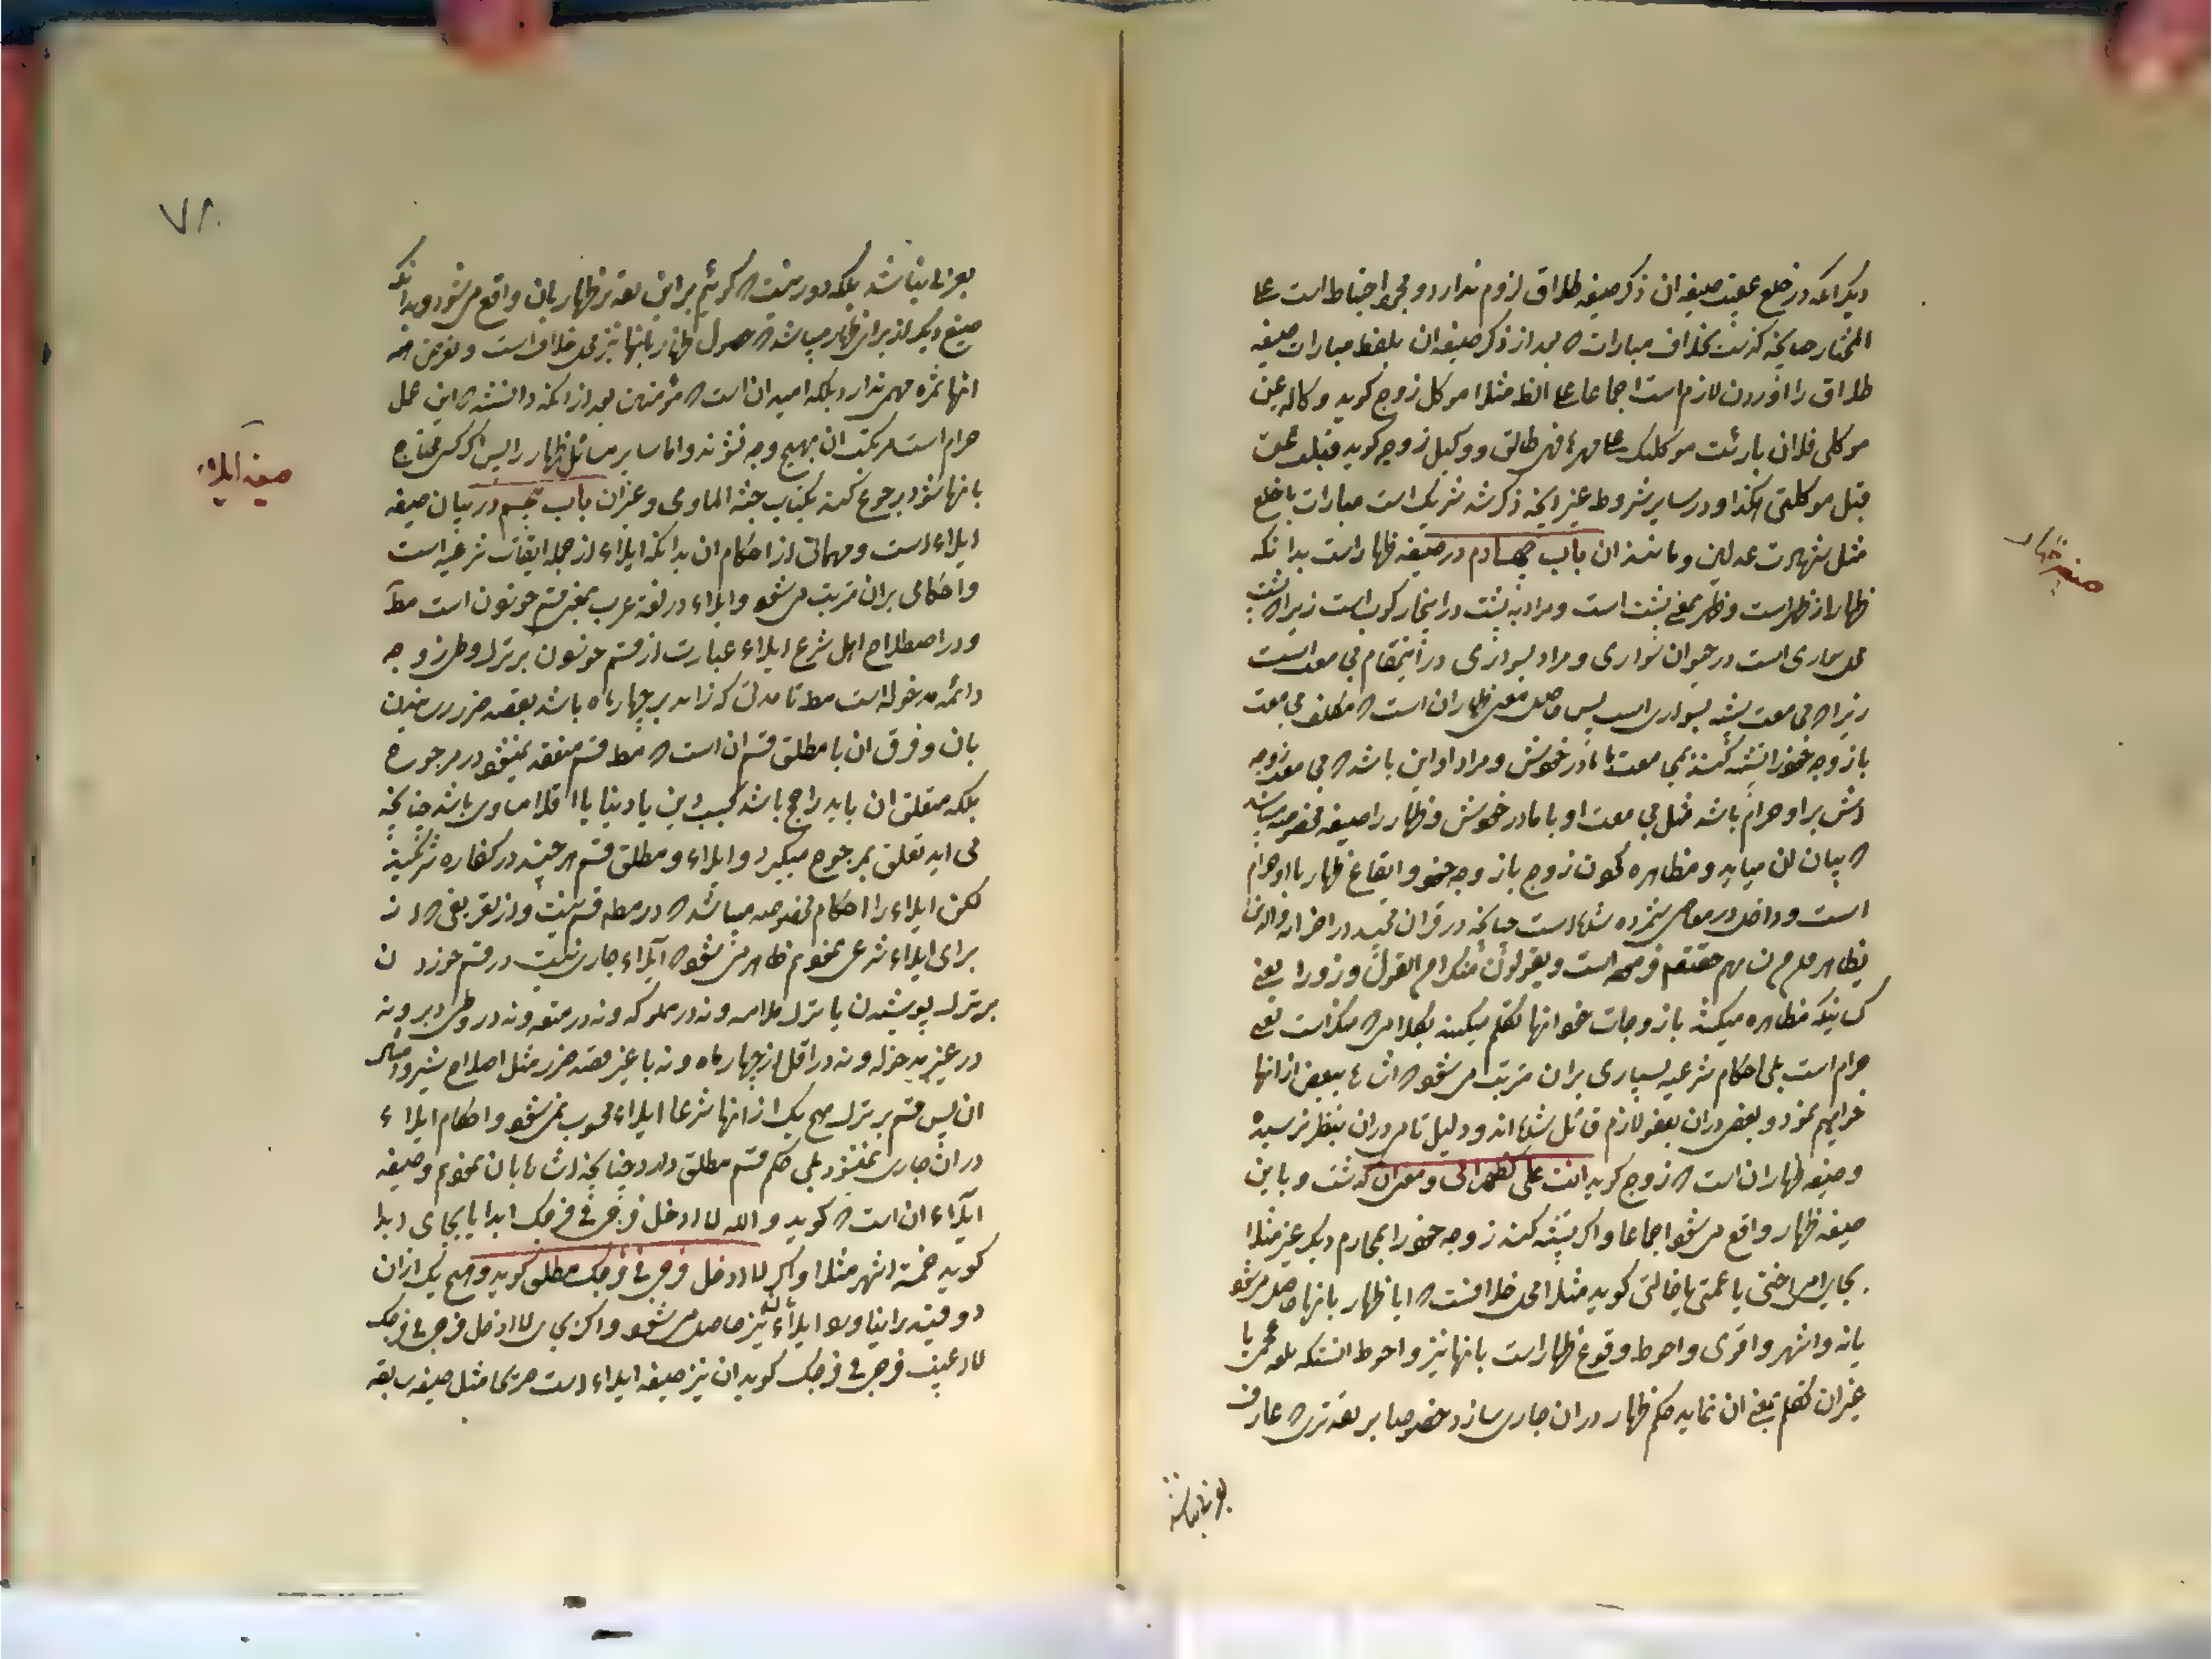 دیگر آنکه در خلع عقیب صیغه ان ذکر صیغه طلاق لزوم ندارد و مجرد احتیاط است علی
المختار چنانچه گذشت بخلاف مبارات که بعد از ذکر صیغه ان بلفظ مبارات صیغه
طلاق را آوردن لازم است اجماعا علی الظ مثلا موکل زوج گوید وکالة عن
موکلی فلان بارئت موکلتک علی مهرها فهی طالق و وکیل زوجه گوید قبلت عن
قبل موکلتی هکذا و در سایر شروط غیر آنچه ذکر شد شریک است مبارات با خلع
مثل شهادت عدلین و مانند ان باب چهاردم در صیغه ظهار است بدانکه
ظهار از ظهر است و ظهر بمعنی پشت است و مراد به پشت در اینجا رکوب است زیرا که پشت
محل سواری است در حیوان سواری و مراد بسواری در اینمقام مجامعت است
زیرا که مجامعت بسواری است پس حاصل معنی ظهار ان است که مکلف مجامعت
با زوجه خود را تشبیه کند بمجامعت با مادر خویش و مراد او این باشد که مجامعت زوجه
اش بر او حرام باشد مثل مجامعت او با مادر خویش و ظهار را صیغه مخصوصه میباشد
که بیان ان میاید و مظاهره کردن زوج با زوجه خود و ایقاع ظهار با او حرام
است و داخل در معاصی شمرده شده است چنانچه در قران مجید در احزاب والذین
یظاهرون منهم فرموده است ویقولون منکرا من القول وزورا یعنی
کسانیکه مظاهره میکنند با زوجات خود انها تکلم میکنند بکلامی که منکر است یعنی
حرام است بلی احکام شرعیه بسیاری بران مترتب می شود که اشاره ببعض از انها
خواهیم نمود و بعضی دران بعفو لازم قائل شده اند و دلیل تامی دران بنظر نرسیده
و صیغه ظهار ان است که زوج گوید انت علی کظهر امی و معنی ان گذشت و باین
صیغه ظهار واقع می شود اجماعا و اگر تشبیه کند زوجه خود را بمحارم دیگر غیر مثلا
بجای امی اختی یا عمتی یا خالتی گوید مثلا محل خلافست که ایا ظهار بانها حاصل می شود
یا نه و اشهر و اقوی و احوط وقوع ظهار است بانها نیز و احوط انستکه بلغه عجمی یا
غیران تکلم بمعنی ان نماید حکم ظهار دران جاری سازد خصوصا بر تقدیری که عارف
بعربی نباشد
صیغه ظهار
۷۸
بعربی نباشد بلکه دور نیست که گوئیم بر این تقدیر ظهار بان واقع می شود و بدانکه
صیغ دیگر نیز برای ظهار میباشد که حصول ظهار بانها نیز محل خلاف است و تعرض
انها ثمره مهمی ندارد بلکه امید ان است که مؤمنین بعد از انکه دانستند که این عمل
حرام است مرتکب ان بهیچ وجه نشوند و اما سایر مسائل ظهار را پس اگر کسی محتاج
بانها شود رجوع کند بکتاب جنة الماوی و غیران باب پنجم در بیان صیغه
ایلاء است و مهماتی از احکام ان بدانکه ایلاء از جمله ایقاعات شرعیه است
و احکامی بران مترتب می شود و ایلاء در لغت عرب بمعنی قسم خوردن است مط
و در اصطلاح اهل شرع ایلاء عبارت از قسم خوردن بر ترک وطی زوجه
دائمه مدخوله است مط تا مدتی که زائد بر چهار ماه باشد بقصد ضرر رسانیدن
بان و فرق ان با مطلق قسم ان است که مط قسم منعقد نمیشود در مرجوح
بلکه متعلق ان باید راجح باشد بحسب دین یا دنیا یا اقلا مساوی باشد چنانچه
می اید تعلق بمرجوح میگیرد و ایلاء و مطلق قسم هر چند در کفاره شریکند
لکن ایلاء را احکام مخصوصه میباشد که در مط قسم نیست و از تعریفی که از
برای ایلاء شرعی نمودیم ظاهر می شود که ایلاء جاری نیست در قسم خوردن
بر ترک پوشیدن یا ترک ملامسه و نه در مملوکه و نه در متعه و نه در وطی دبر و نه
در غیر مدخوله و نه در اقل از چهار ماه و نه با غیر قصد ضرر مثل اصلاح شیر و امثال
ان پس قسم بر ترک هیچ یک از انها شرعا ایلاء محسوب نمی شود و احکام ایلاء
دران جاری نمیشود بلی حکم قسم مطلق دارد چنانچه اشاره بان نمودیم و صیغه
ایلاء ان است که گوید والله لا ادخل فرجی فی فرجک ابدا یا بجای ابدا
گوید خمسة اشهر مثلا و اگر لا ادخل فرجی فی فرجک مطلق گوید و هیچ یک از ان
دو قید را نیاورد ایلاء نیز حاصل می شود و اگر بجای لا ادخل فرجی فی فرجک
لا اغیب فرجی فی فرجک گوید ان نیز صیغه ایلاء است صریحا مثل صیغه سابقه
صیغه ایلاء